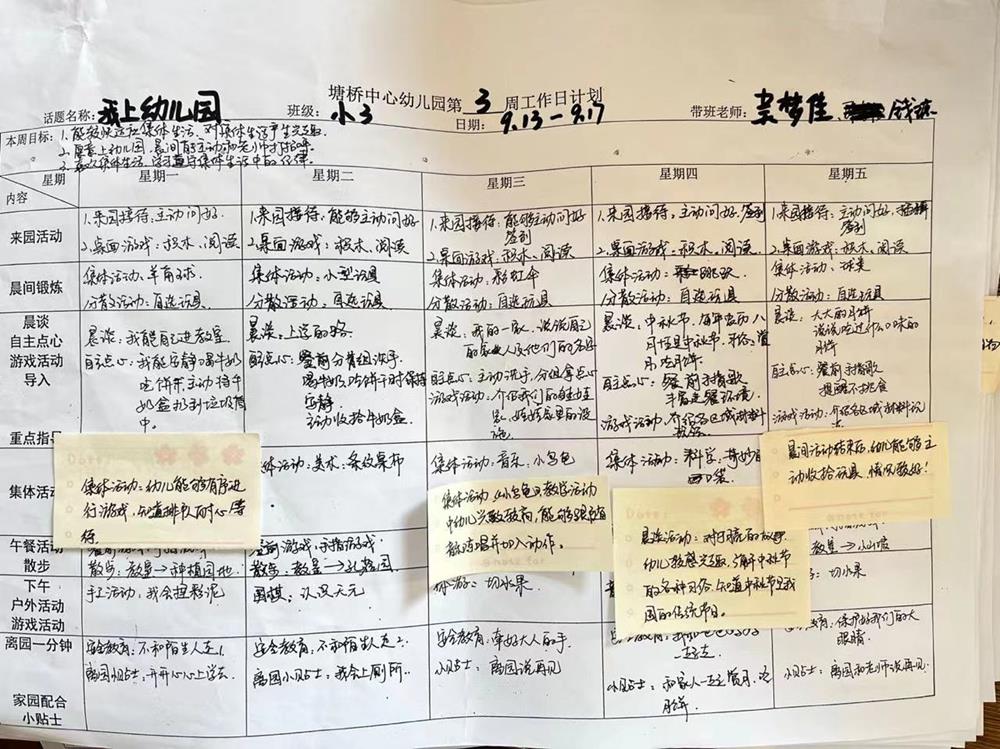 塘桥中心幼儿园第 3 周工作日计划
话题名称：我上幼儿园 班级：小3 日期：9.13-9.17 带班老师：
本周目标：1.能够快速和集体生活，对集体生活产生兴趣
2.愿意上幼儿园，晨间能主动和老师打招呼
3.喜欢集体生活，学习遵守集体生活中的纪律
星期 星期一 星期二 星期三 星期四 星期五
内容
来园活动
1.来园接待，主动问好.
2.桌面游戏：积木、阅读
1.来园接待，能够主动问好
2.桌面游戏：积木、阅读
1.来园接待：能够主动问好
签到
2.桌面游戏：积木、阅读
1.来园接待，主动问好，签到
2.桌面游戏：积木、阅读
1.来园接待：主动问好，
签到
2.桌面游戏：积木、阅读
晨间锻炼
集体活动：羊角球.
分散活动：自选玩具
集体活动：小型玩具
分散活动：自选玩具
集体活动：彩虹伞
分散活动：自选玩具
集体活动：跳跃
分散活动：自选玩具
集体活动：球类
分散活动：自选玩具
晨谈
自主点心
游戏活动
导入
重点指导
晨谈：我能自己进教室
自主点心：我能安静喝牛奶
吃饼干主动将牛
奶盒扔到垃圾筒
中。
晨谈：上学的路
自主点心：餐前分组洗手，
喝牛奶吃饼干时保持
安静
主动收拾牛奶盒
晨谈：我的一家，说说自己
的家人及他们的名字
自主点心：主动洗手，分组拿点心
游戏活动：介绍我们的娃娃
家，娃娃家里的设
施
晨谈：中秋节，每年农历八
月
月吃月饼
自主点心：餐前手指歌
游戏活动：介绍各区域材料
晨谈：大大的月饼
说说吃过什么口味的
月饼
自主点心：餐前手指歌
提醒不挑食
游戏活动：介绍各区域材料说
集体活动
集体活动：美术：条纹桌布
集体活动：音乐：小乌龟
集体活动：科学：奇妙
口袋
集体活动：幼儿能够有序进
行游戏，知道排队耐心等
待.
集体活动《小乌龟》教学活动
中幼儿兴致较高，能够跟随音
乐演唱并加入动作。
晨谈活动：
幼儿较感兴趣，了解中秋节
的各种习俗，知道中秋节是我
国的传统节日。
晨间活动结束后，幼儿能够主
动收拾玩具，情况较好！
午餐活动
散步
散步：教室→种植园地.
餐前游戏：手指游戏
散步：教室→
教室→小山坡
下午
户外活动
游戏活动
手工活动：我会捏彩泥
围棋：认识天元
体游：切水果
切水果
离园一分钟
安全教育：不和陌生人走1
离园小贴士：开开心心上学去
安全教育：不和陌生人走2
离园小贴士：我会上厕所.
安全教育：牵好大人的手
小贴士：离园说再见
小贴士：和家人一起赏月，吃
月饼
保护好我们的大
眼睛
小贴士：离园和老师说再见
家园配合
小贴士